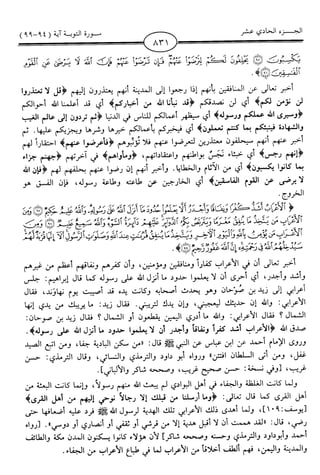 الجـزء الحادي عشر
٨٣١
سورة التوبة آية (٩٤-٩٩)
يَكْسِبُونَ يَحْلِفُونَ لَكُمْ لِتَرْضَوْا عَنْهُمْ فَإِن تَرْضَوْا عَنْهُمْ فَإِنَّ اللَّهَ لَا يَرْضَىٰ عَنِ الْقَوْمِ
الْفَاسِقِينَ
أخبر تعالى عن المنافقين بأنهم إذا رجعوا إلى المدينة أنهم يعتذرون إليهم ﴿قل لا تعتذروا
لن نؤمن لكم﴾ أي لن نصدقكم ﴿قد نبأنا الله من أخباركم﴾ أي قد أعلمنا الله أحوالكم
﴿وسيرى الله عملكم ورسوله﴾ أي سيظهر أعمالكم للناس في الدنيا ﴿ثم تردون إلى عالم الغيب
والشهادة فينبئكم بما كنتم تعملون﴾ أي فيخبركم بأعمالكم خيرها وشرها ويجزيكم عليها. ثم
أخبر عنهم أنهم سيحلفون معتذرين لتعرضوا عنهم فلا تؤنبوهم ﴿فأعرضوا عنهم﴾ احتقاراً لهم
﴿إنهم رجس﴾ أي خبثاء نجس بواطنهم واعتقاداتهم، ﴿ومأواهم﴾ في آخرتهم ﴿جهنم جزاء
بما كانوا يكسبون﴾ أي من الآثام والخطايا. وأخبر أنهم إن رضوا عنهم بحلفهم لهم ﴿فإن الله
لا يرضى عن القوم الفاسقين﴾ أي الخارجين عن طاعته وطاعة رسوله، فإن الفسق هو
الخروج.
الْأَعْرَابُ أَشَدُّ كُفْرًا وَنِفَاقًا وَأَجْدَرُ أَلَّا يَعْلَمُوا حُدُودَ مَا أَنزَلَ اللَّهُ عَلَىٰ رَسُولِهِ وَاللَّهُ عَلِيمٌ حَكِيمٌ وَمِنَ
الْأَعْرَابِ مَن يَتَّخِذُ مَا يُنفِقُ مَغْرَمًا وَيَتَرَبَّصُ بِكُمُ الدَّوَائِرَ عَلَيْهِمْ دَائِرَةُ السَّوْءِ وَاللَّهُ سَمِيعٌ عَلِيمٌ وَمِنَ
الْأَعْرَابِ مَن يُؤْمِنُ بِاللَّهِ وَالْيَوْمِ الْآخِرِ وَيَتَّخِذُ مَا يُنفِقُ قُرُبَاتٍ عِندَ اللَّهِ وَصَلَوَاتِ الرَّسُولِ أَلَا إِنَّهَا قُرْبَةٌ لَّهُمْ
سَيُدْخِلُهُمُ اللَّهُ فِي رَحْمَتِهِ إِنَّ اللَّهَ غَفُورٌ رَّحِيمٌ
أخبر تعالى أن في الأعراب كفاراً ومنافقين ومؤمنين، وأن كفرهم ونفاقهم أعظم من غيرهم
وأشد وأجدر، أي أحرى أن لا يعلموا حدود ما أنزل الله على رسوله كما قال إبراهيم: جلس
أعرابي إلى زيد بن صُوْحان وهو يحدث أصحابه وكانت يده قد أصيبت يوم نهاوند، فقال
الأعرابي: والله إن حديثك ليعجبني، وإن يدك لتريبني. فقال زيد: ما يريبك من يدي إنها
الشمال؟ فقال الأعرابي: والله ما أدري اليمين يقطعون أو الشمال؟ فقال زيد بن صوحان:
صدق الله ﴿الأعراب أشد كفراً ونفاقاً وأجدر أن لا يعلموا حدود ما أنزل الله على رسوله﴾.
وروى الإمام أحمد عن ابن عباس عن النبي ﷺ قال: «من سكن البادية جفا، ومن اتبع الصيد
غفل، ومن أتى السلطان افتتن» ورواه أبو داود والترمذي والنسائي، وقال الترمذي: حسن
غريب، [وفي نسخة: حسن صحيح غريب، وصححه شاكر والألباني].
ولما كانت الغلظة والجفاء في أهل البوادي لم يبعث الله منهم رسولاً، وإنما كانت البعثة من
أهل القرى كما قال تعالى: ﴿وما أرسلنا من قبلك إلا رجالاً نوحي إليهم من أهل القرى﴾
[يوسف: ١٠٩]، ولما أهدى ذلك الأعرابي تلك الهدية لرسول الله ﷺ فرد عليه أضعافها حتى
رضي، قال: «لقد هممت أن لا أقبل هدية إلا من قرشي أو ثقفي أو أنصاري أو دوسي». [رواه
أحمد وأبوداود والترمذي وحسنه وصححه شاكر] لأن هؤلاء كانوا يسكنون المدن مكة والطائف
والمدينة واليمن، فهم ألطف أخلاقاً من الأعراب لما في طباع الأعراب من الجفاء.